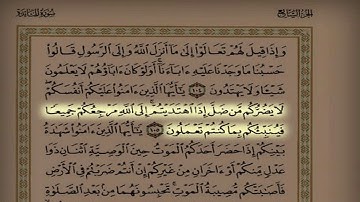 الجزء السابع سورة المائدة
وَإِذَا قِيلَ لَهُمْ تَعَالَوْا۟ إِلَىٰ مَآ أَنزَلَ ٱللَّهُ وَإِلَى ٱلرَّسُولِ قَالُوا۟
حَسْبُنَا مَا وَجَدْنَا عَلَيْهِ ءَابَآءَنَآ أَوَلَوْ كَانَ ءَابَآؤُهُمْ لَا يَعْلَمُونَ
شَيْـًٔا وَلَا يَهْتَدُونَ ١٠٤ يَـٰٓأَيُّهَا ٱلَّذِينَ ءَامَنُوا۟ عَلَيْكُمْ أَنفُسَكُمْ
لَا يَضُرُّكُم مَّن ضَلَّ إِذَا ٱهْتَدَيْتُمْ إِلَى ٱللَّهِ مَرْجِعُكُمْ جَمِيعًا
فَيُنَبِّئُكُم بِمَا كُنتُمْ تَعْمَلُونَ ١٠٥ يَـٰٓأَيُّهَا ٱلَّذِينَ ءَامَنُوا۟ شَهَـٰدَةُ
بَيْنِكُمْ إِذَا حَضَرَ أَحَدَكُمُ ٱلْمَوْتُ حِينَ ٱلْوَصِيَّةِ ٱثْنَانِ ذَوَا
عَدْلٍ مِّنكُمْ أَوْ ءَاخَرَانِ مِنْ غَيْرِكُمْ إِنْ أَنتُمْ ضَرَبْتُمْ فِى ٱلْأَرْضِ
فَأَصَـٰبَتْكُم مُّصِيبَةُ ٱلْمَوْتِ تَحْبِسُونَهُمَا مِنۢ بَعْدِ ٱلصَّلَوٰةِ